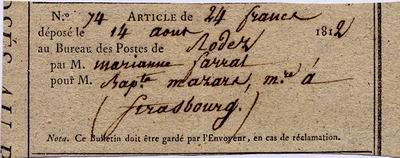 N.º 74 ARTICLE de 24 francs
déposé le 14 aout 1812
au Bureau des Postes de Rodez
par M. marianne farrat
pour M. Bap.te mazars, m.re á
(strasbourg.)
Nota. Ce Bulletin doit être gardé par l'Envoyeur, en cas de réclamation.